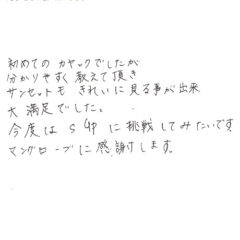 初めての カヤックでしたが
分かりやすく 教えて頂き
サンセットも きれいに見る事が出来
大満足でした。
今度は SUP に挑戦してみたいです
マングローブに感謝します。